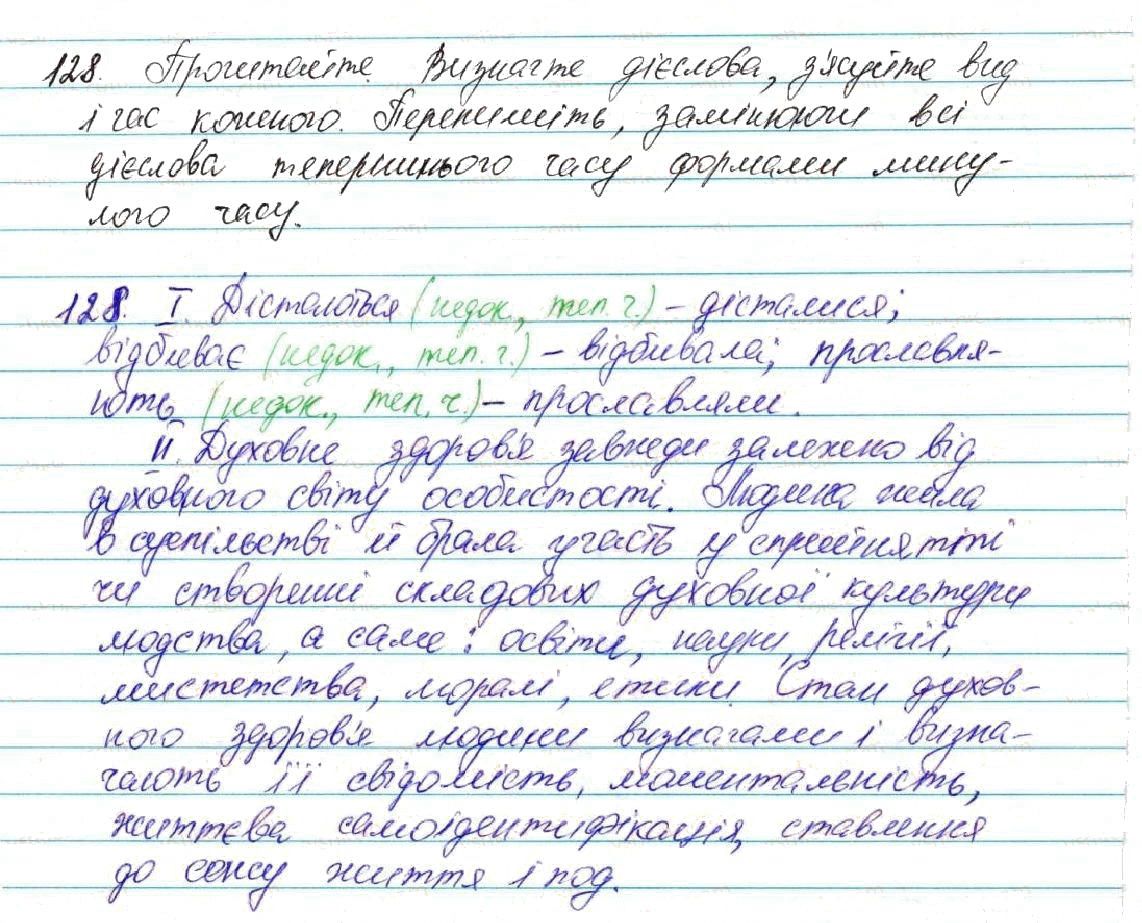 128. Прочитайте. Визначте дієслова, з'ясуйте вид
і час кожного. Перепишіть, замінюючи всі
дієслова теперішнього часу формами мину-
лого часу.
128. І. Дістаються (недок., теп. ч.) – дісталися;
відбиває (недок., теп. ч.) – відбивала; прославля-
ють (недок., теп. ч.) – прославляли.
ІІ. Духовне здоров'я завжди залежало від
духовного світу особистості. Людина жила
в суспільстві й брала участь у сприйнятті
чи створенні складових духовної культури
людства, а саме: освіти, науки, релігії,
мистецтва, моралі, етики. Стан духов-
ного здоров'я людини визначали і визна-
чають її свідомість, ментальність,
життєва самоідентифікація, ставлення
до сенсу життя і под.